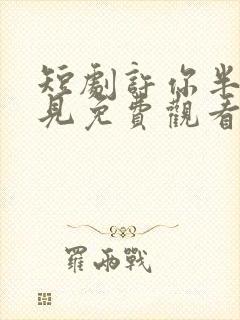 短劇許你半
見免費觀看
羅兩戰